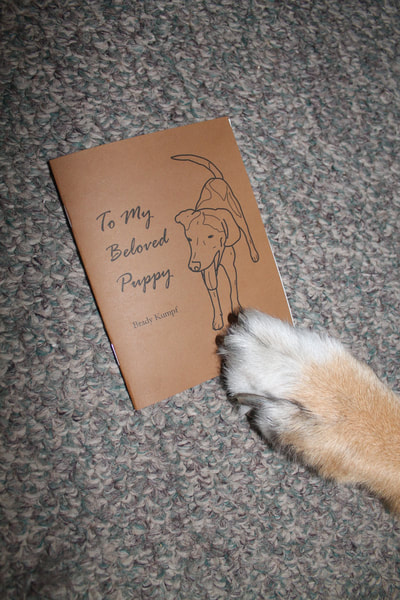 To My
Beloved
Puppy
Brady Kumpf